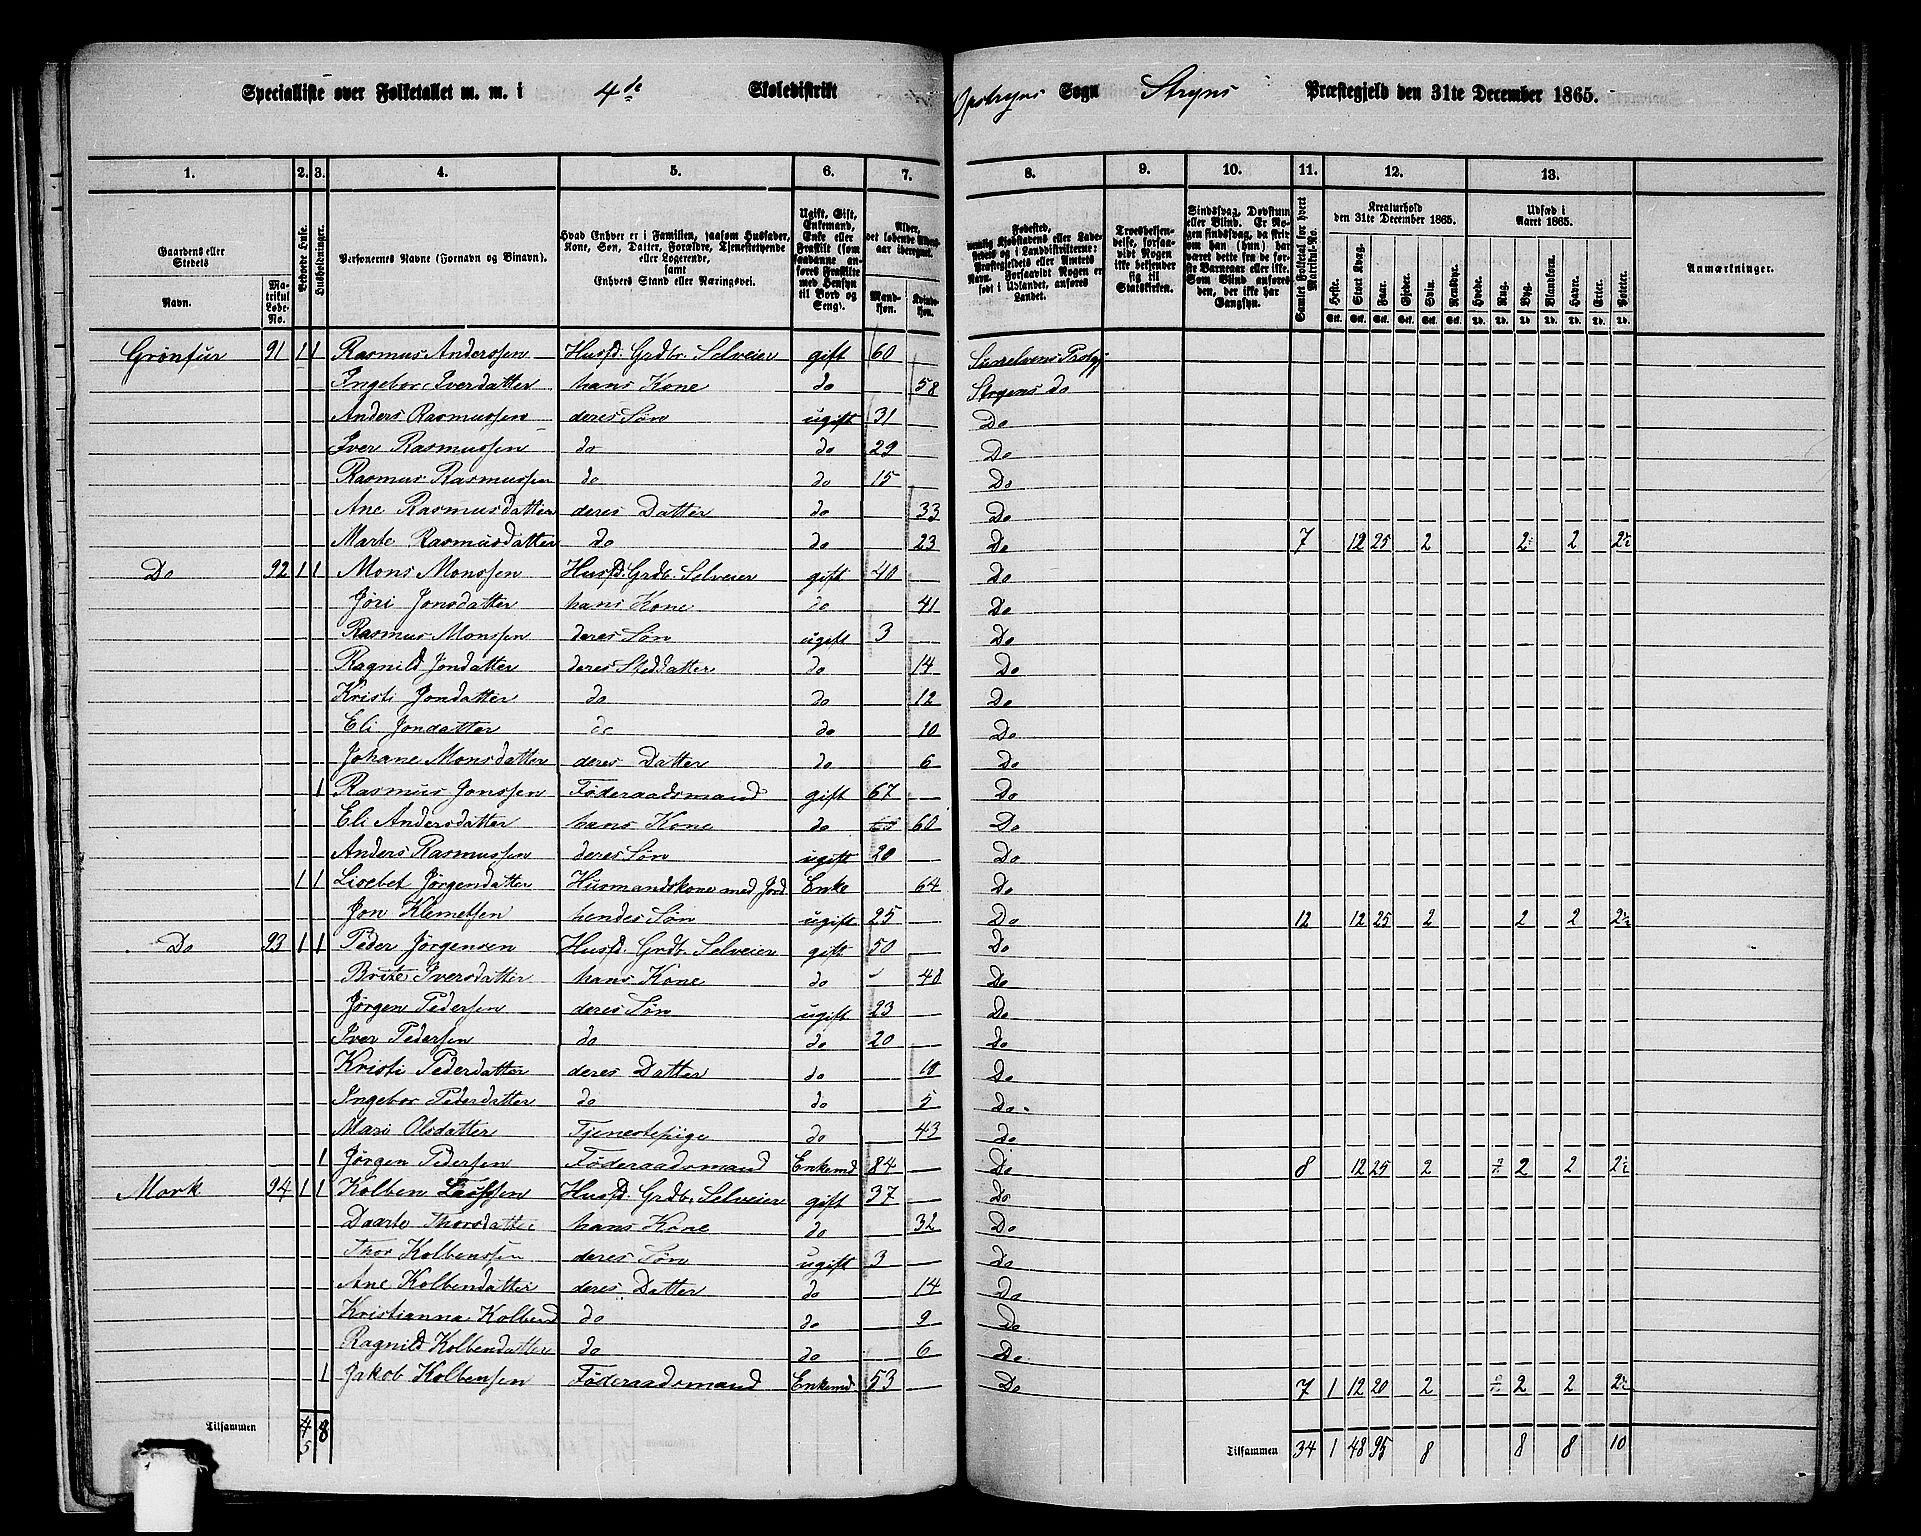 Specialliste over Folketallet m. m. i 4de Skoledistrikt Opstryns Sogn Stryns Præstegjeld den 31te December 1865.
1. 2. 3. 4. 5. 6. 7. 8. 9. 10. 11. 12. 13.
Gaardens eller Stedets Navn. Matrikul Løbe-No. Beboede Huse. Husholdninger. Personernes Navne (Fornavn og Binavn). Hvad Enhver er i Familien, saasom Husfader, Kone, Søn, Datter, Forældre, Tjenestetyende eller Logerende, samt Enhvers Stand eller Næringsvei. Ugift, Gift, Enkemand, Enke eller Fraskilt (som saadanne anføres Fraskilte med Hensyn til Bord og Seng). Alder, det løbende Alders-aar iberegnet. Mandkjøn. Kvindekjøn.
Fødested, Troesbekjendelse, forsaavidt Nogen ikke bekjender sig til Statskirken. Samlet Folketal for hvert Matrikul-No. Kreaturhold den 31te December 1865. Heste. Stort Kvæg. Faar. Gjeder. Svin. Rensdyr. Udsæd i Aaret 1865. Hvede. Rug. Byg. Blandkorn. Havre. Erter. Poteter. Anmærkninger.
Grønfur 91 1 1 Rasmus Anderssen Husfd. Grdbr. Selveier gift 60 Sunelvens Prstgj
Ingebor Iverdatter hans Kone do 58 Stryens do
Anders Rasmussen deres Søn ugift 31 Do
Iver Rasmussen do do 29 Do
Rasmus Rasmussen do do 15 Do
Ane Rasmusdatter deres Datter do 33 Do
Marte Rasmusdatter do do 23 Do 7 12 25 2 2 2 2½
Do 92 1 1 Mons Monssen Husfd. Grdb. Selveier gift 40 Do
Jøri Jonsdatter hans Kone do 41 Do
Rasmus Monssen deres Søn ugift 3 Do
Ragnild Jondatter deres Steddatter do 14 Do
Kristi Jondatter do do 12 Do
Eli Jondatter do do 10 Do
Johane Monsdatter deres Datter do 6 Do
1 Rasmus Jonssen Føderaadsmand gift 67 Do
Eli Andersdatter hans Kone do 60 Do
Anders Rasmussen deres Søn ugift 20 Do
1 1 Lisebet Jørgendatter Husmandskone med Jord Enke 64 Do
Jon Klemetsen hendes Søn ugift 25 Do 12 12 25 2 2 2 2½
Do 93 1 1 Peder Jørgensen Husfd. Grdb. Selveier gift 50 Do
Brite Iversdatter hans Kone do 48 Do
Jørgen Pedersen deres Søn ugift 23 Do
Iver Pedersen do do 20 Do
Kristi Pedersdatter deres Datter do 10 Do
Ingebor Pedersdatter do do 5 Do
Mari Olsdatter Tjenestepige do 43 Do
1 Jørgen Pedersen Føderaadsmand Enkemd 84 Do 8 12 25 2 2 2 2½
Mork 94 1 1 Kolben Husfd. Grdbr. Selveier gift 37 Do
Daarte Thorsdatter hans Kone do 32 Do
Thor Kolbenssen deres Søn ugift 3 Do
Ane Kolbendatter deres Datter do 14 Do
Kristianna Kolbend do do 9 Do
Ragnild Kolbendatter do do 6 Do
1 Jakob Kolbensen Føderaadsmand Enkemd 53 Do 7 1 12 20 2 2 2 2½
Tilsammen 4 5 8 Tilsammen 34 1 48 95 8 8 8 10